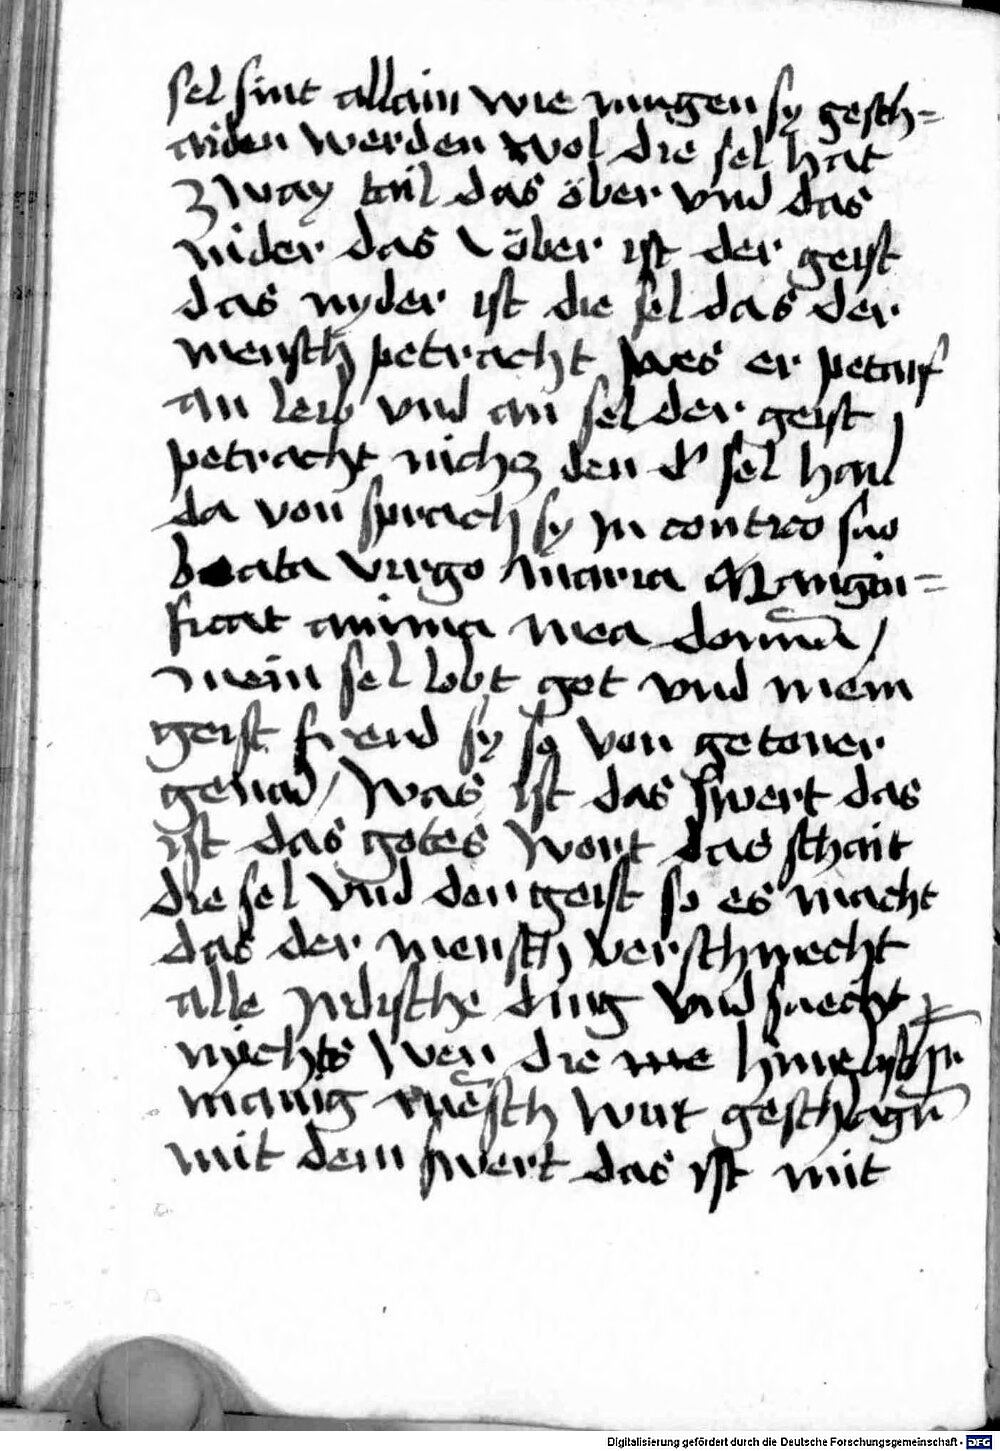 sel sint allain wie mugen sy gesch=
aiden werden wol die sel hat
zway tail das öber vnd das
nider das öber ist der geist
das nyder ist die sel das der
mensch petracht wes er petarf
an leib vnd an sel der geist
petracht nichz den d' sel hail
da von sprach sy in
beata virgo maria Mangni=
ficat anima mea
mein sel lobt got vnd mein
geist frewd sy so von
genad / was ist das swert das
ist das gotes wort das schait
die sel vnd den geist so es macht
das der mensch verschmecht
alle yrdische ding vnd suecht
nychts wen die
manig mensch wirt geschlagn
mit dem swert das ist mit
Digitalisierung gefördert durch die Deutsche Forschungsgemeinschaft - DFG